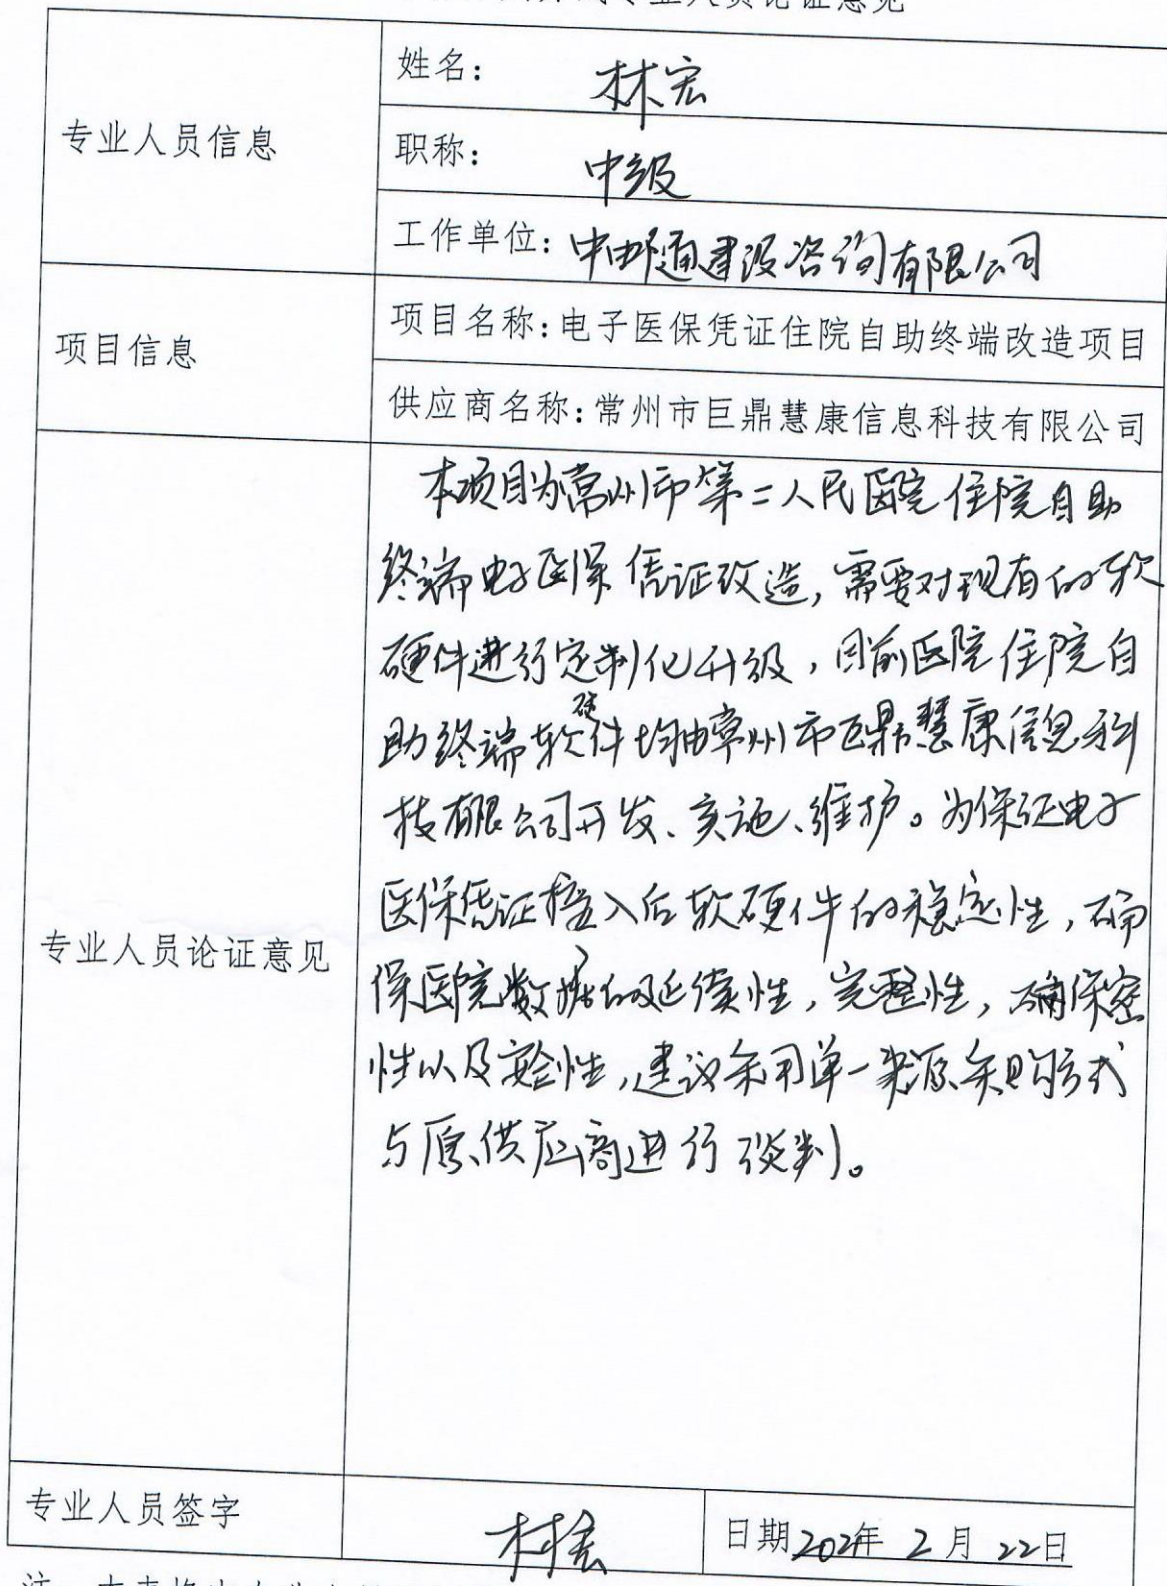 专业人员论证意见
专业人员信息
姓名: 林宏
职称: 中级
工作单位: 中邮通建设咨询有限公司
项目信息
项目名称:电子医保凭证住院自助终端改造项目
供应商名称:常州市巨鼎慧康信息科技有限公司
专业人员论证意见
本项目为常州市第二人民医院住院自助
终端电子医保凭证改造,需要对现有的软
硬件进行定制化升级,目前医院住院自
助终端软硬件均由常州市巨鼎慧康信息科
技有限公司开发、实施、维护。为保证电子
医保凭证接入后软硬件的稳定性,确
保医院数据的延续性,完整性,确保密
性以及安全性,建议采用单一来源采购方式
与原供应商进行谈判。
专业人员签字
林宏
日期 202年 2月 22日